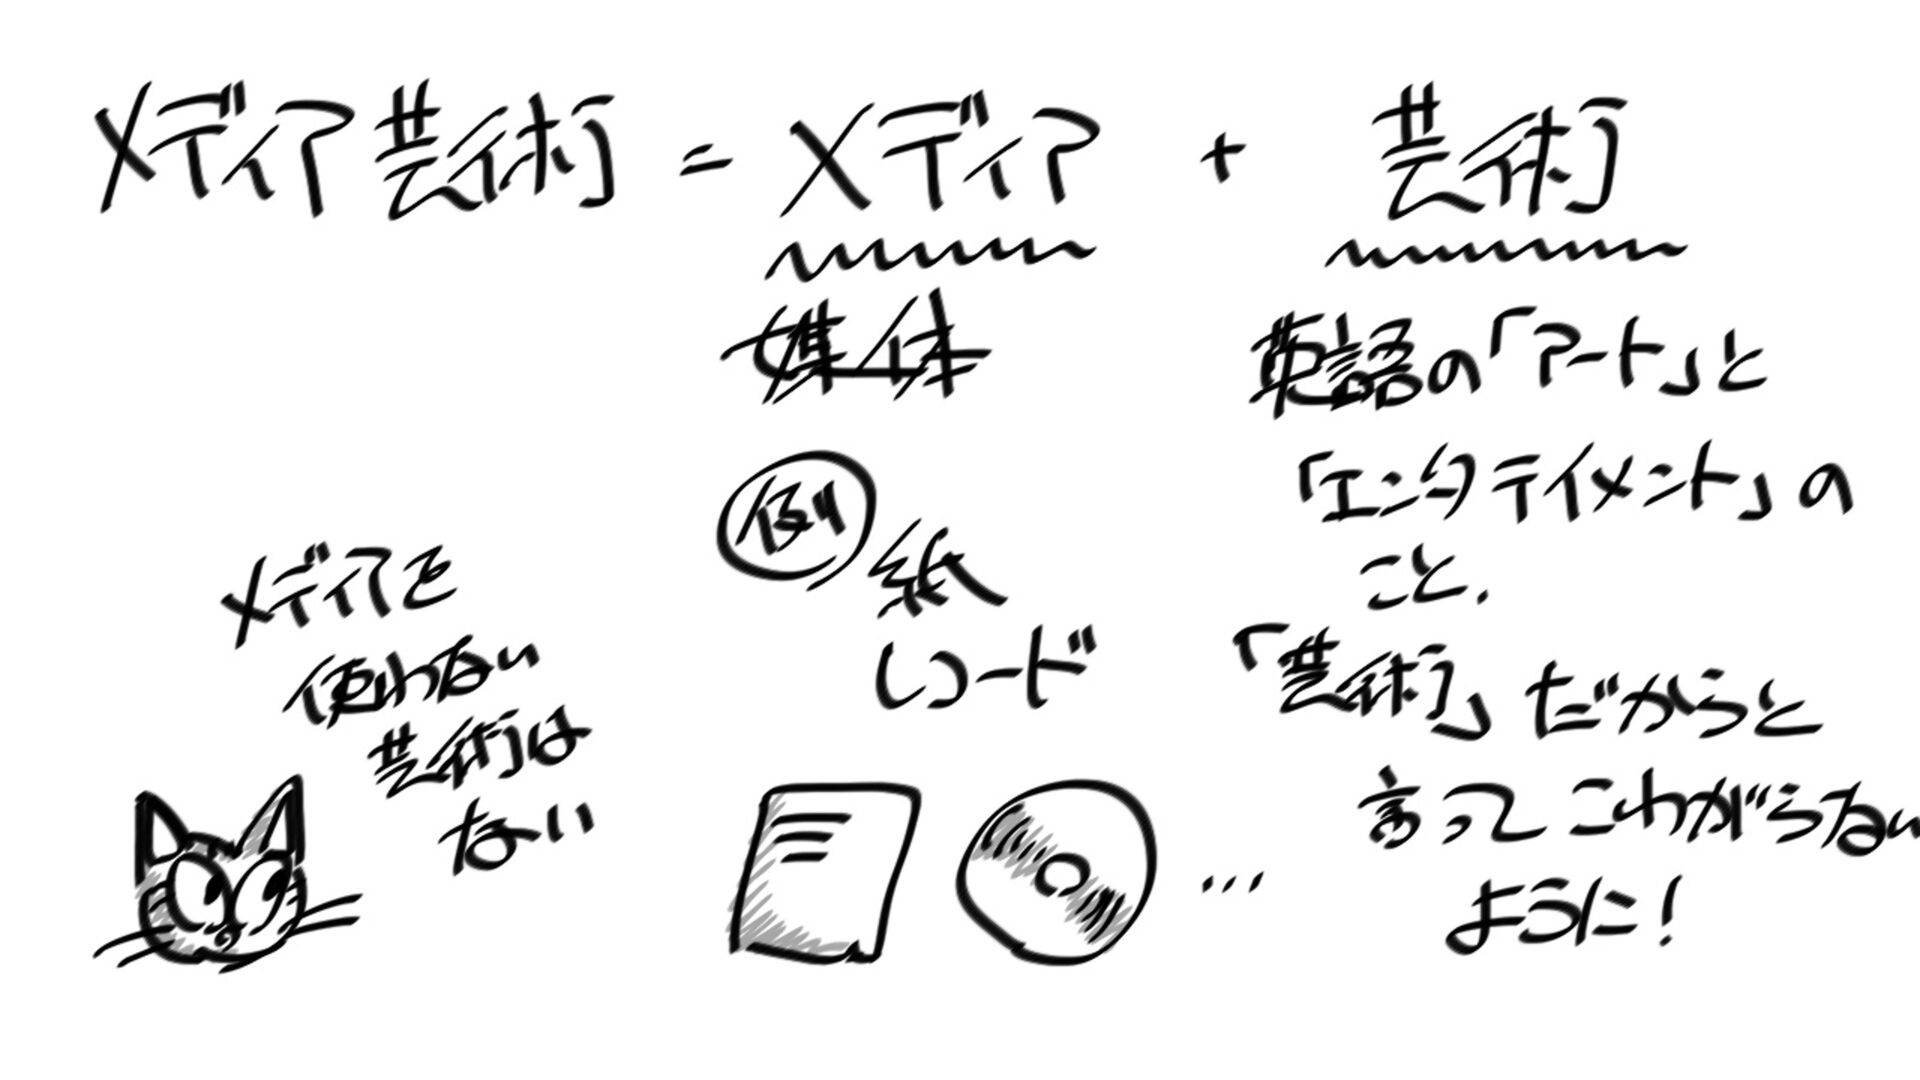 メディア芸術 = メディア + 芸術
媒体
例 紙
レコード
…
英語の「アート」と
「エンタテイメント」の
こと.
「芸術」だからと
言ってこわがらない
ように!
メディアを
使わない
芸術は
ない